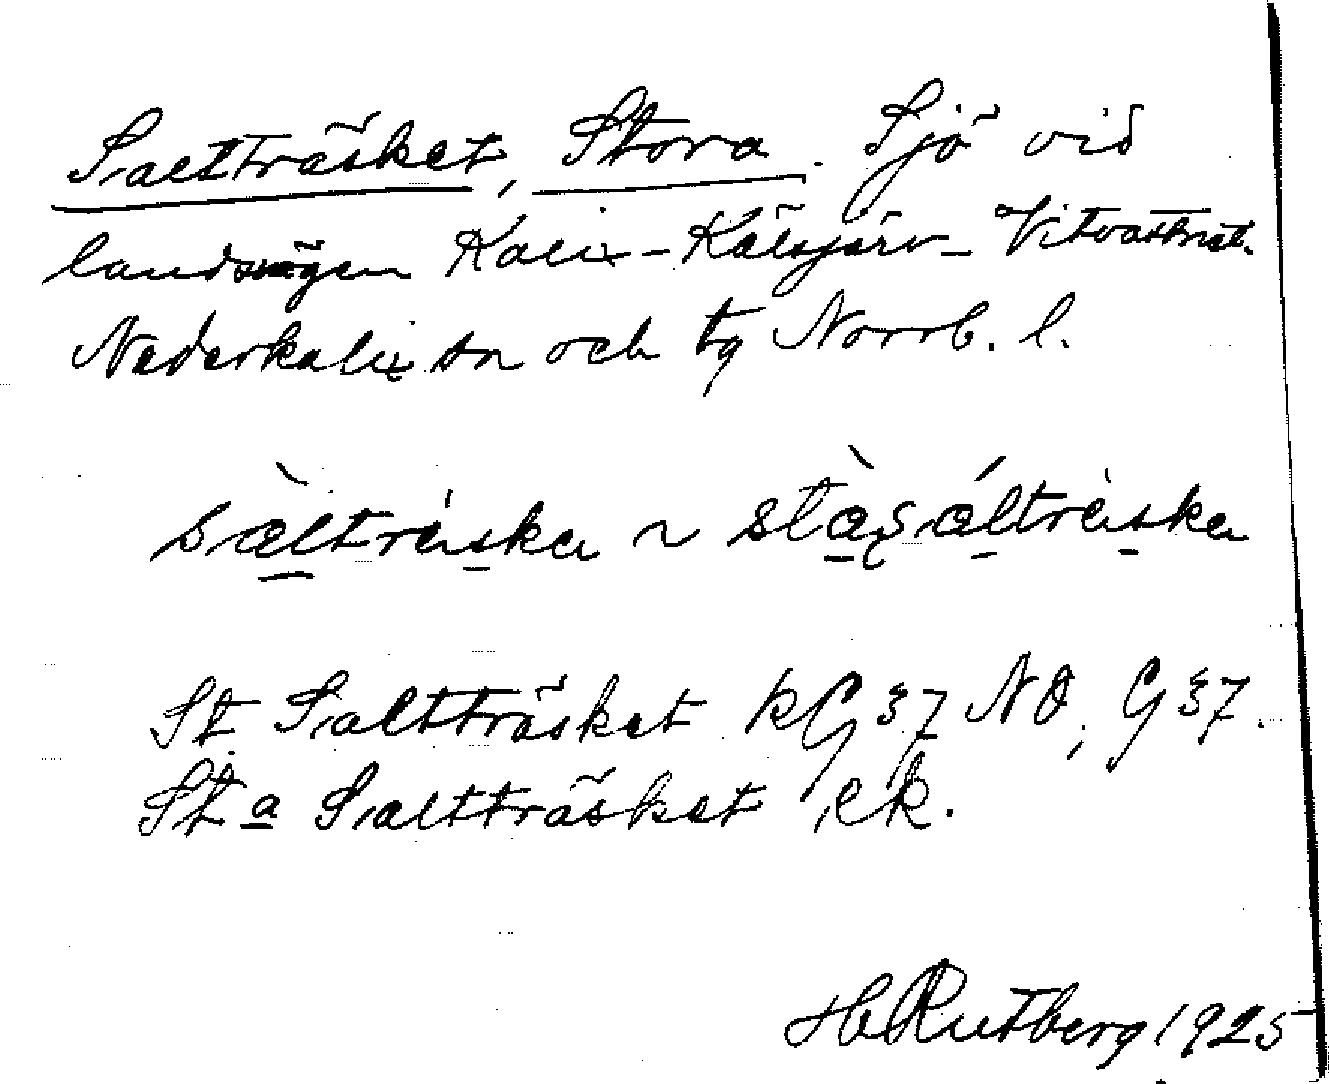 Saltträsket, Stora. Sjö vid
landsvägen Kalix - Kälsjärv - Vitvattnet.
Nederkalix sn och tg Norrb. l.
sàltrèiska ~ stàṣáltrèiska
St. Saltträsket kG 37 NO, G 37.
St a Saltträsket ek.
H Rutberg 1925